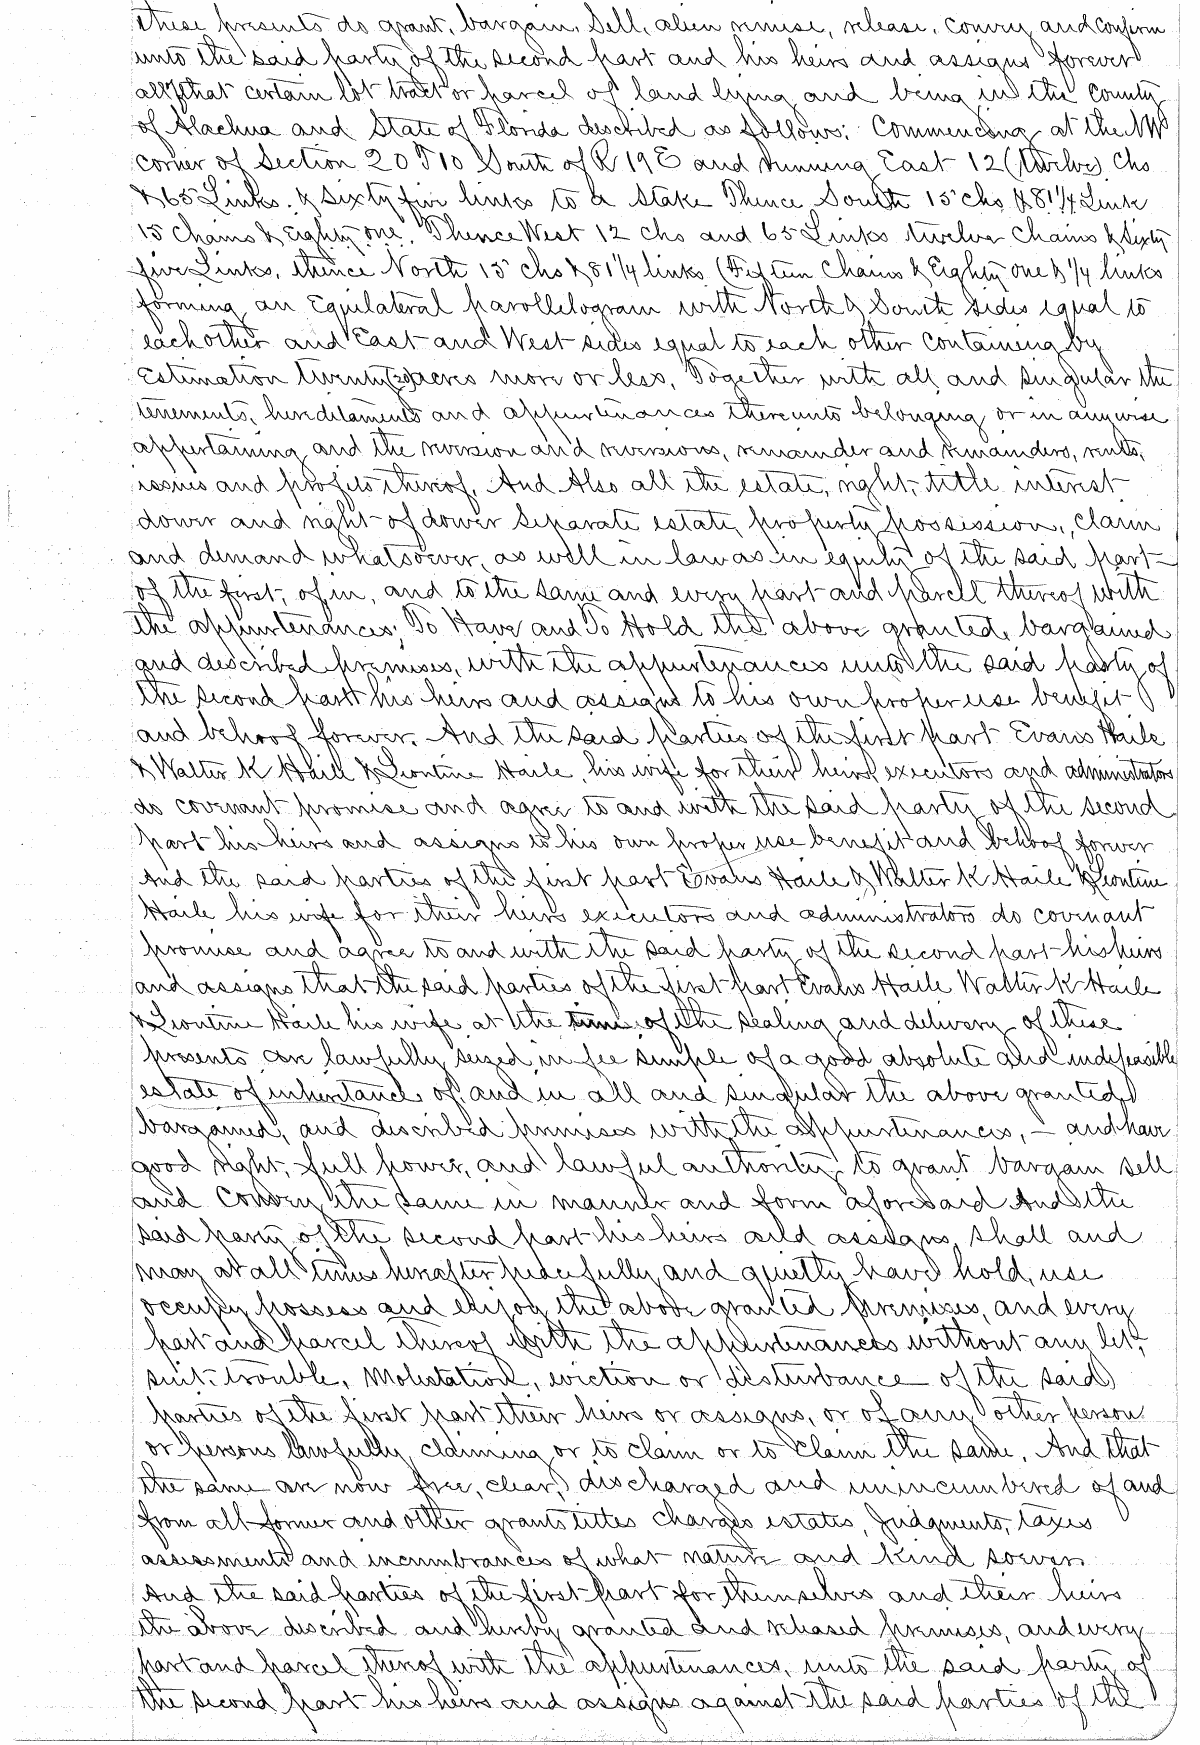 these presents do grant, bargain, Sell, alien remise, release, convey and confirm
unto the said party of the second part and his heirs and assigns forever
all that certain lot tract or parcel of land lying and being in the county
of Alachua and State of Florida described as follows: Commencing at the NW
corner of Section 20 T10 South of R 19 E and running East 12 (twelve) chs
& 65 Links. & Sixty five links to a Stake Thence South 15 chs & 81 1/4 Link
15 Chains & Eighty one. Thence West 12 chs and 65 Links twelve Chains & Sixty
five Links, thence North 15 chs & 81 1/4 links (Fifteen Chains & Eighty one & 1/4 links
forming an Equilateral parollelogram with North & South sides equal to
each other and East and West sides equal to each other containing by
Estimation twenty (20) acres more or less, Together with all and singular the
tenements, hereditaments and appurtenances thereunto belonging or in anywise
appertaining and the reversion and reversions, remainder and remainders, rents,
issues and profits thereof. And Also all the estate, right, title interest
dower and right of dower Separate estate, property possession, claim
and demand whatsoever, as well in law as in equity of the said part
of the first, of in, and to the same and every part and parcell thereof with
the appurtenances; To Have and To Hold the above granted, bargained
and described premises, with the appurtenances unto the said party of
the second part his heirs and assigns to his own proper use benefit
and behoof forever. And the said parties of the first part Evans Haile
& Walter K Haile & Leontine Haile, his wife for their heirs, executors and administrators
do covenant promise and agree to and with the said party of the second
part his heirs and assigns to his own proper use benefit and behoof forever
And the said parties of the first part Evans Haile & Walter K Haile & Leontine
Haile his wife for their heirs executors and administrators do covenant
promise and agree to and with the said party of the second part his heirs
and assigns that the said parties of the first part Evans Haile Walter K Haile
& Leontine Haile his wife at the time of the sealing and delivery of these
presents are lawfully seized in fee simple of a good absolute and indefeasible
estate of inheritance of, and in all and singular the above granted,
bargained, and described premises with the appurtenances, – and have
good right, full power, and lawful authority, to grant bargain sell
and Convey the same in manner and form aforesaid And the
said party of the second part his heirs and assigns, shall and
may at all times hereafter peacefully and quietly have hold, use
occupy possess and enjoy the above granted premises, and every
part and parcel thereof with the appurtenances without any let,
suit, trouble, Molestation, eviction or disturbance of the said
parties of the first part their heirs or assigns, or of any other person
or persons lawfully claiming or to claim or to claim the same. And that
the same are now free, clear, discharged and unincumbered of and
from all former and other grants titles charges estates, Judgments, taxes
assessments and incumbrances of what nature and kind soever
And the said parties of the first part for themselves and their heirs
the above described and hereby granted and released premises, and every
part and parcel thereof with the appurtenances, unto the said party of
the second part his heirs and assigns against the said parties of the